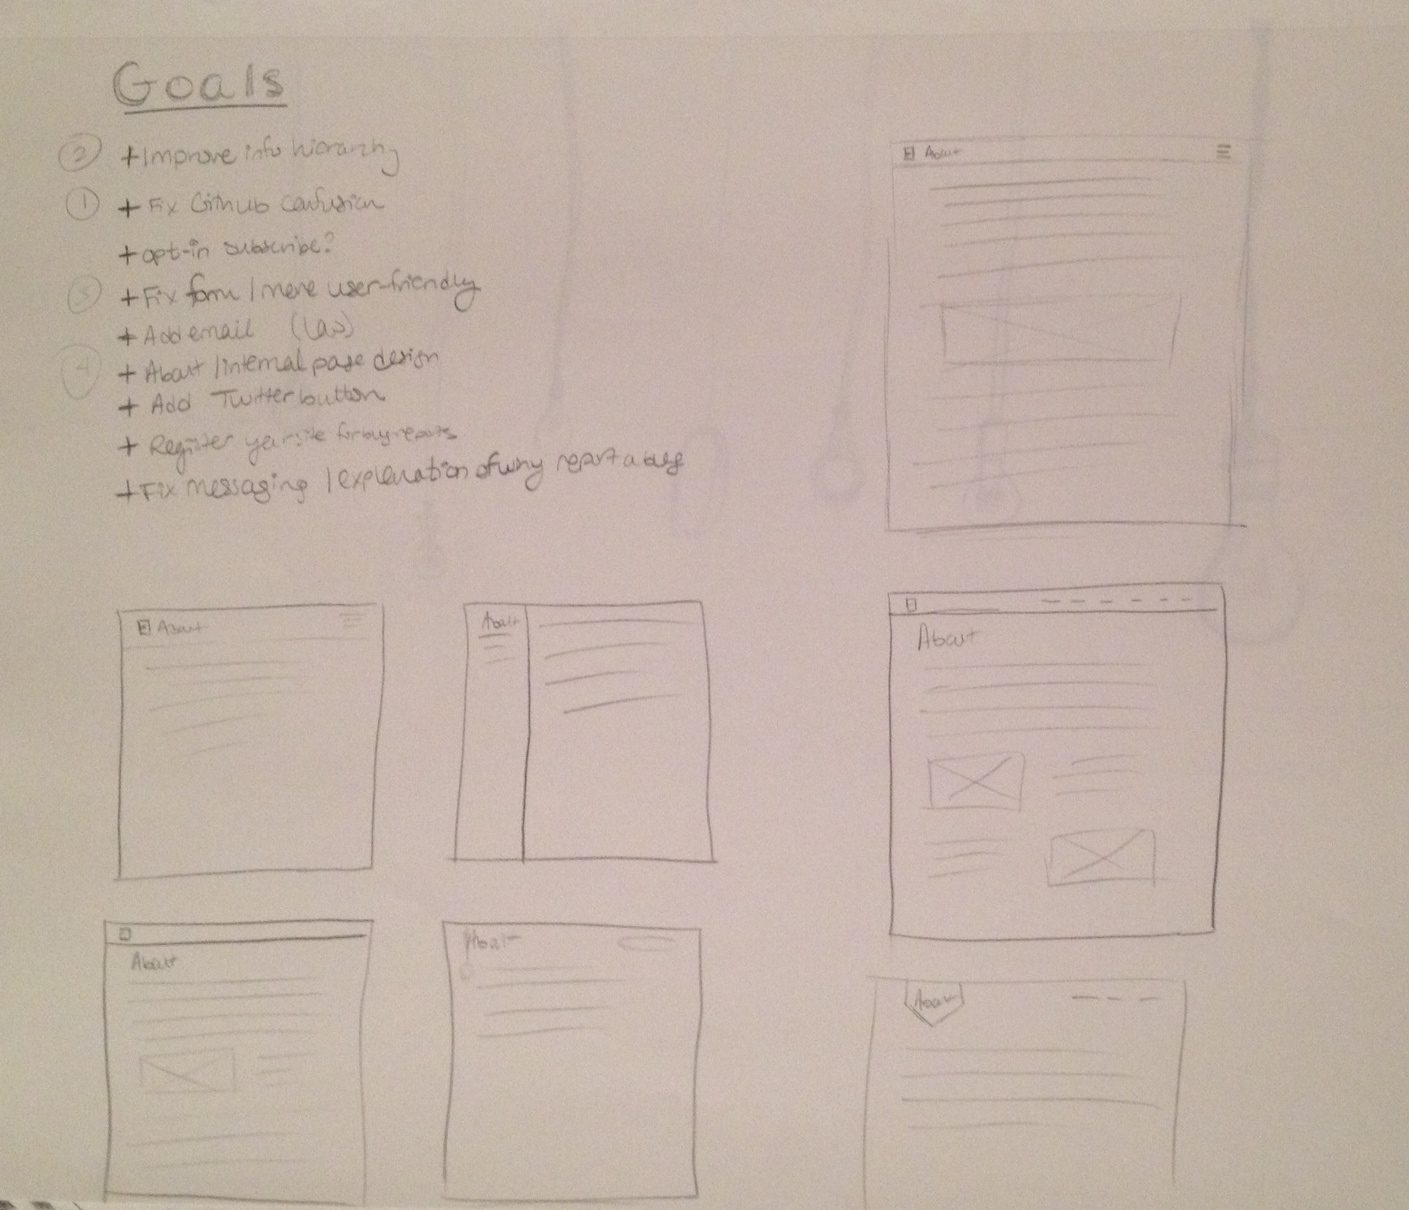 Goals
2 + Improve info hierarchy
1 + Fix Github confusion
+ opt-in subscribe?
3 + Fix form / more user-friendly
+ Add email
4 + About / internal page design
+ Add Twitter button
+ Register your site for bug reports
+ Fix messaging / explanation of why report a bug
About
About
About
About
About
About
About